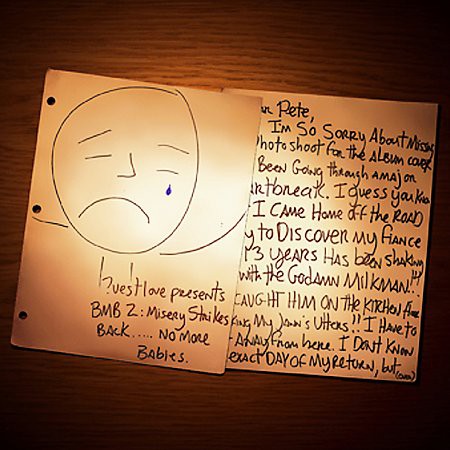 ?uestlove presents
BMB 2: Misery Strikes
Back..... No More
Babies.
Pete,
I'm So Sorry About Missing
photoshoot for the Album cover
Been Going through a major
rtbreak. I guess you know
I Came Home off the Road
y to Discover my Fiance
3 years Has been shaking
with the Godamn Milkman.!!
CAUGHT HIM ON THE KITCHEN
king My Utters!! I Have to
Away from here. I Dont Know
exact DAY of My Return, but
(over)